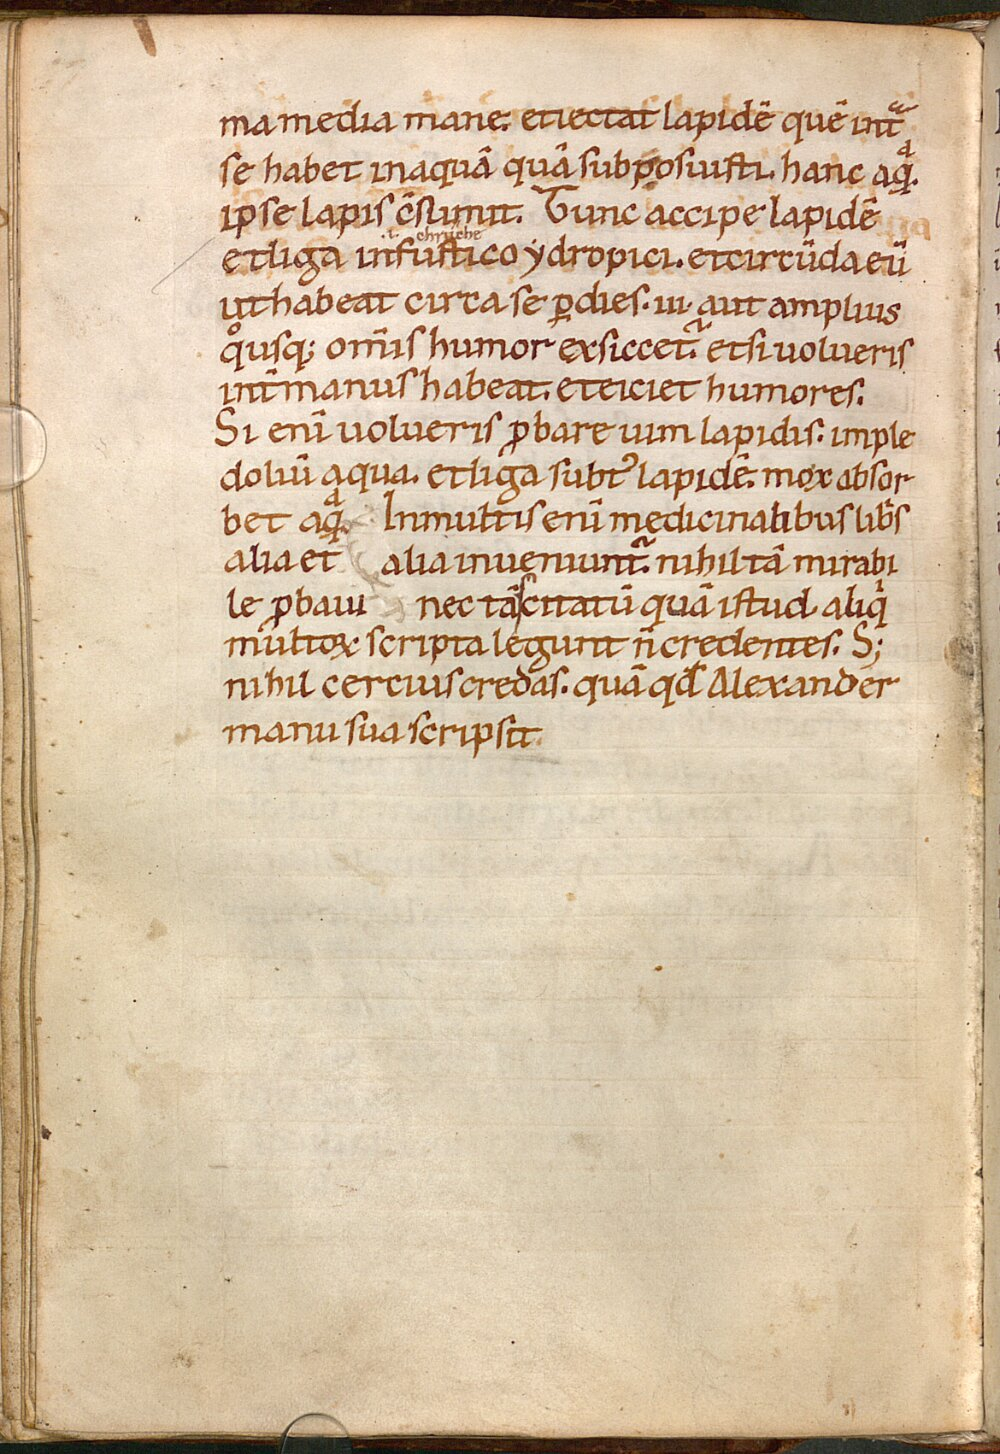 ma media mane. et iectat lapidē quē int̄ᵃ
se habet in aquā quā subposuisti. hanc aqͣ̄.
ipse lapis c̄sumit. Tunc accipe lapidē
.i. chruche
et liga in fustico ydropici. et circūda eū
ut habeat circa se ꝑ dies .iii. aut amplius
qͦusq; om̄is humor exsiccet᷑. et si uolueris
int̄ manus habeat. et eiciet humores.
Si eni̅ uolueris ꝓbare uim lapidis. imple
doliū aqua. et liga subt᷑ lapidē. mox absor
bet aqͣ̄. In multis eni̅ medicinalibus lib̄s
alia et alia inueniunt᷑. nihil tā mirabi
le ꝓbaui nec tā citatū quā istud aliqͥ
multoꝝ scripta legunt n̄ credentes. S;
nihil cercius credas. quā qđ Alexander
manu sua scripsit.